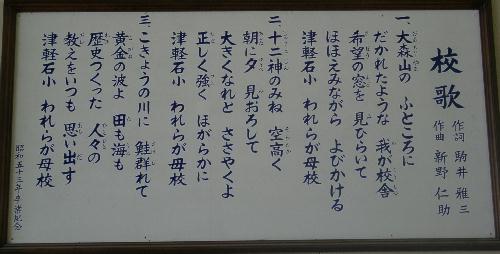 校歌
作詞 駒井 雅三
作曲 新野 仁助
一、大森山の ふところに
だかれたような 我が校舎
希望の窓を 見ひらいて
ほほえみながら よびかける
津軽石小 われらが母校
二、十二神のみね 空高く
朝に夕 見おろして
大きくなれと ささやくよ
正しく強く ほがらかに
津軽石小 われらが母校
三、こきょうの川に 鮭群れて
黄金の波よ 田も海も
歴史つくった 人々の
教えをいつも 思い出す
津軽石小 われらが母校
昭和五十三年卒業記念